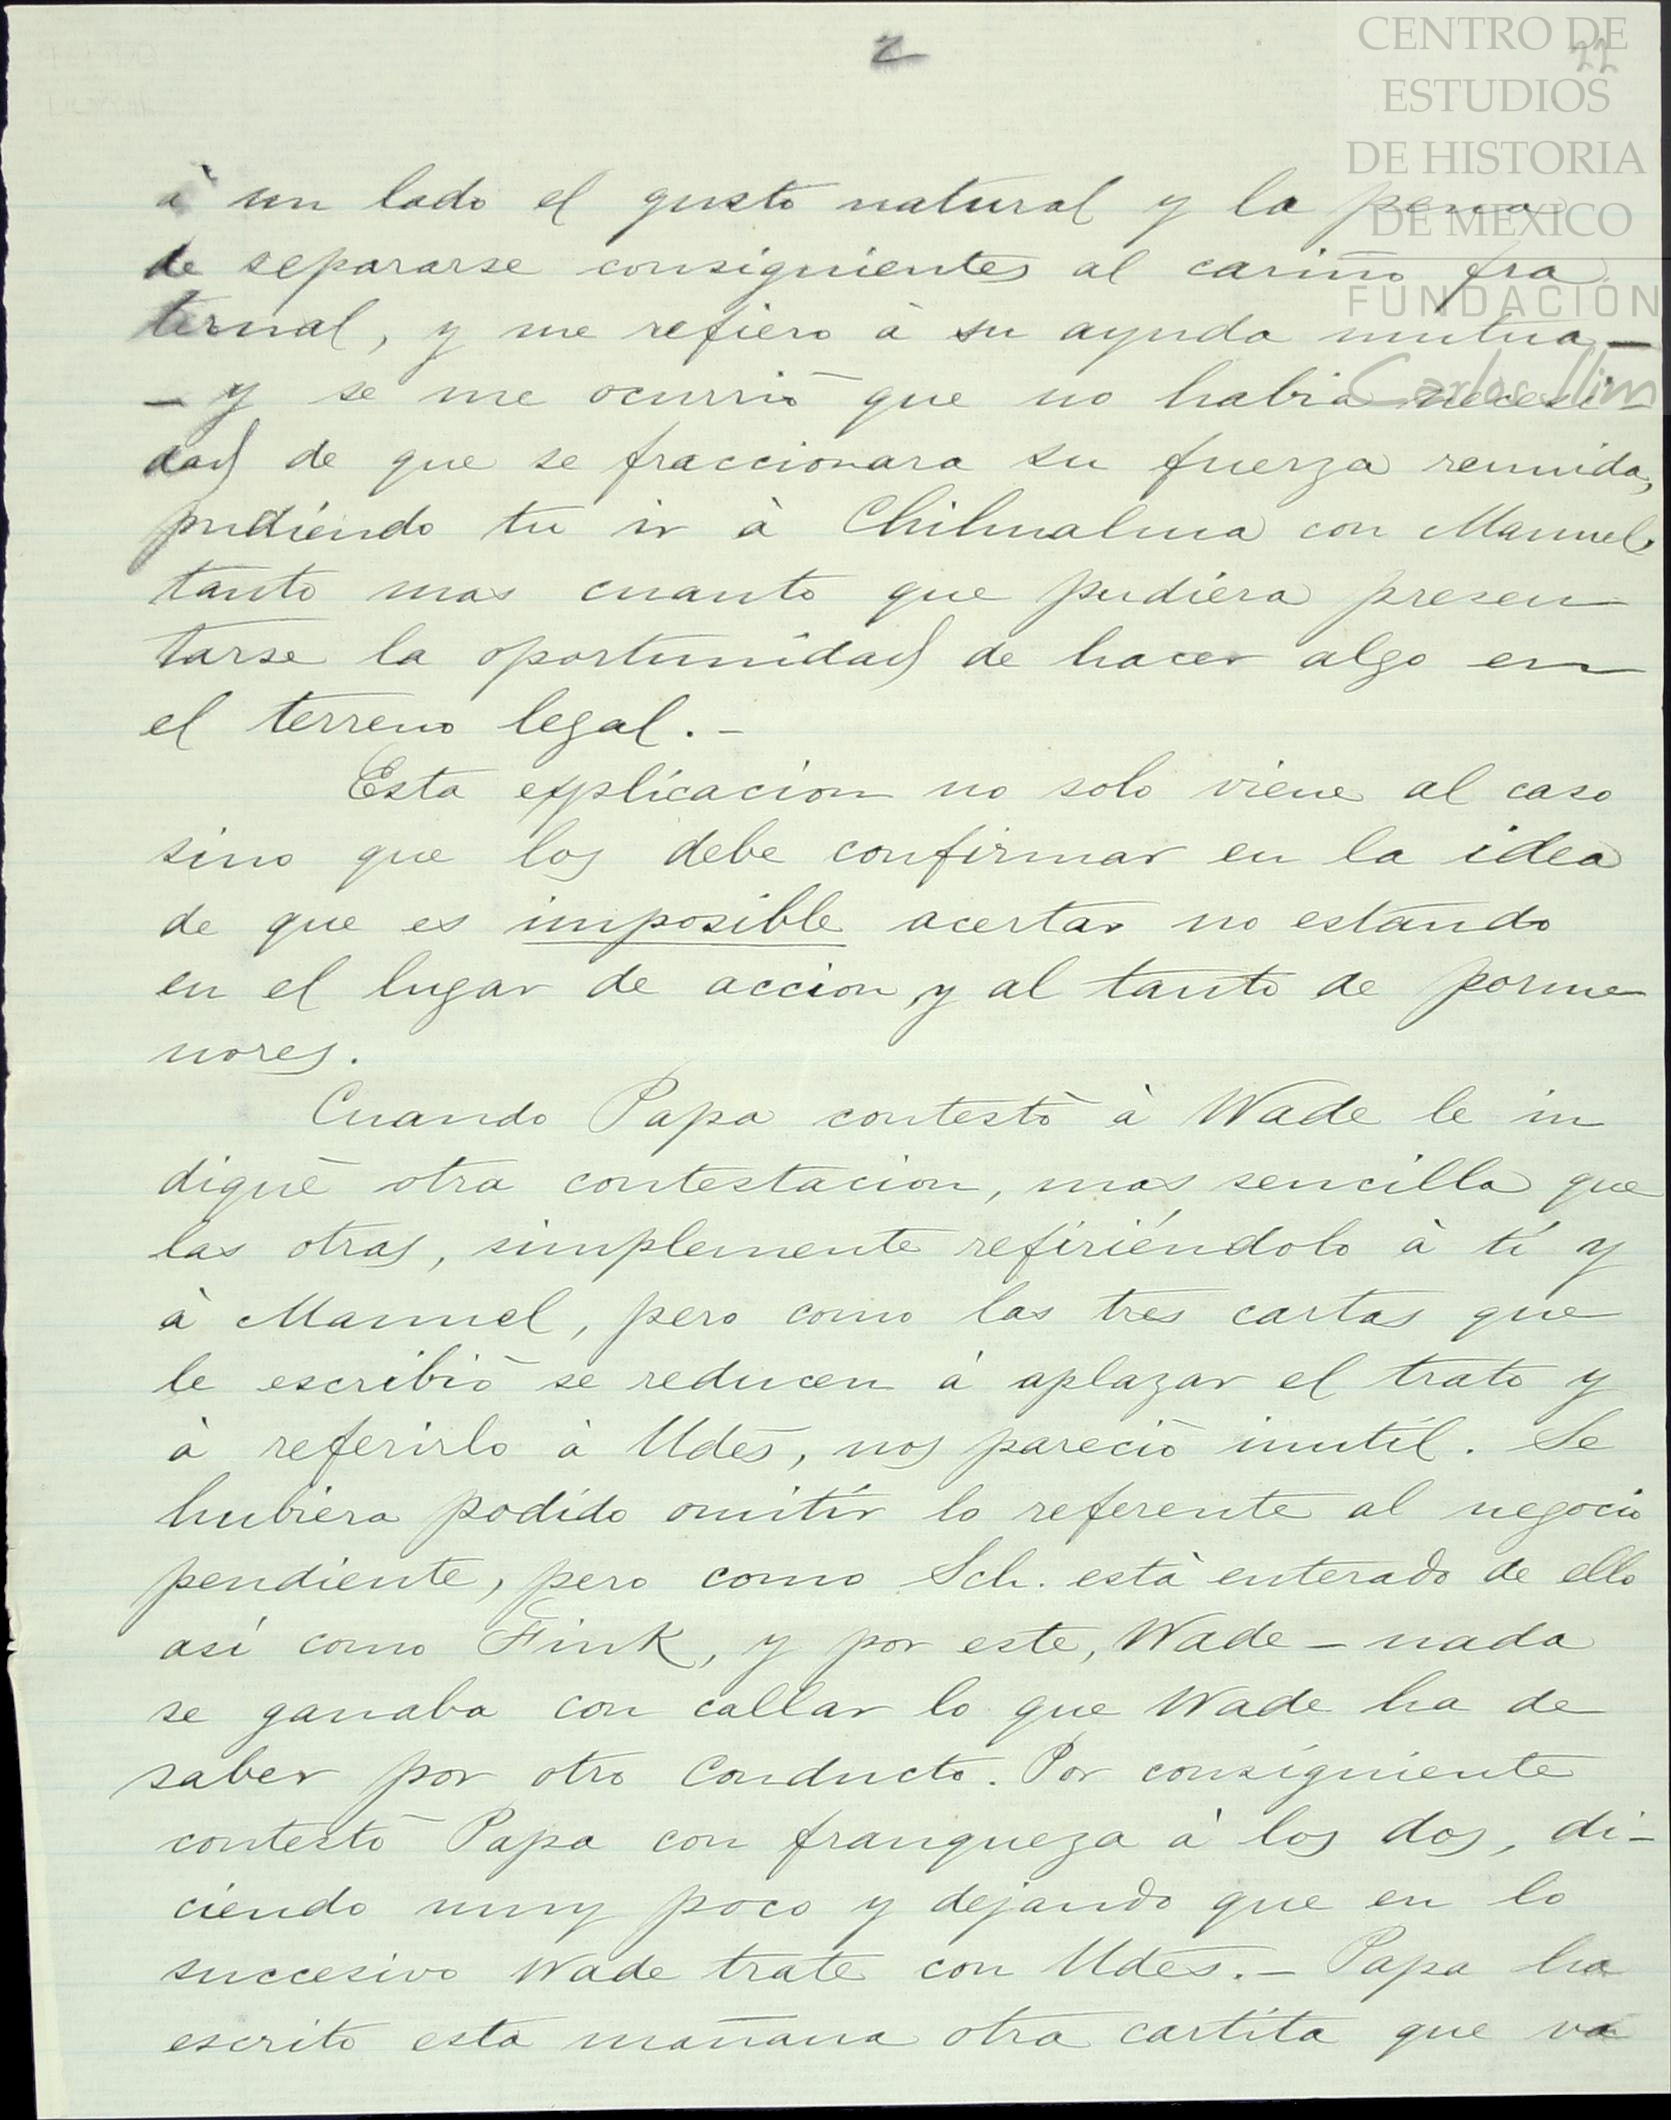 2
22
CENTRO DE
ESTUDIOS
DE HISTORIA
DE MEXICO
FUNDACIÓN
Carlos Slim
à un lado el gusto natural y la pena
de separarse consiguientes al cariño fra
ternal, y me refiero à su ayuda mutua —
— y se me ocurriò que no habia necesi-
dad de que se fraccionara su fuerza reunida,
pudiendo tu ir à Chihuahua con Manuel,
tanto mas cuanto que pudiera presen
tarse la oportunidad de hacer algo en
el terreno legal. –
Esta explicacion no solo viene al caso
sino que los debe confirmar en la idea
de que es imposible acertar no estando
en el lugar de accion y al tanto de porme
nores.
Cuando Papa contestò à Wade le in
diquè otra contestacion, mas sencilla que
las otras, simplemente refiriéndolo à tí y
à Manuel, pero como las tres cartas que
le escribiò se reducen à aplazar el trato y
à referirlo à Udes, nos pareciò inutil. Se
hubiera podido omitir lo referente al negocio
pendiente, pero como Sch. està enterado de ello
así como Fink, y por este, Wade – nada
se ganaba con callar lo que Wade ha de
saber por otro conducto. Por consiguiente
contestò Papa con franqueza à los dos, di-
ciendo muy poco y dejando que en lo
succesivo Wade trate con Udes. – Papa ha
escrito esta mañana otra cartita que va